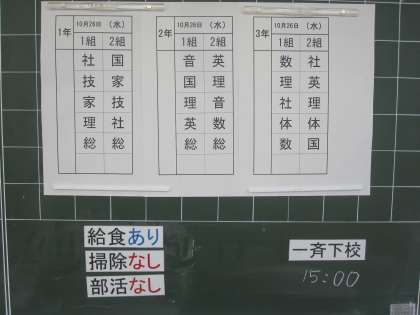 1年 10月26日 (水)
1組 2組
社 国
技 家
家 技
理 社
総 総
2年 10月26日 (水)
1組 2組
音 英
国 理
理 音
英 数
総 総
3年 10月26日 (水)
1組 2組
数 社
理 英
社 理
体 体
数 国
給食あり
掃除なし
部活なし
一斉下校
15:00